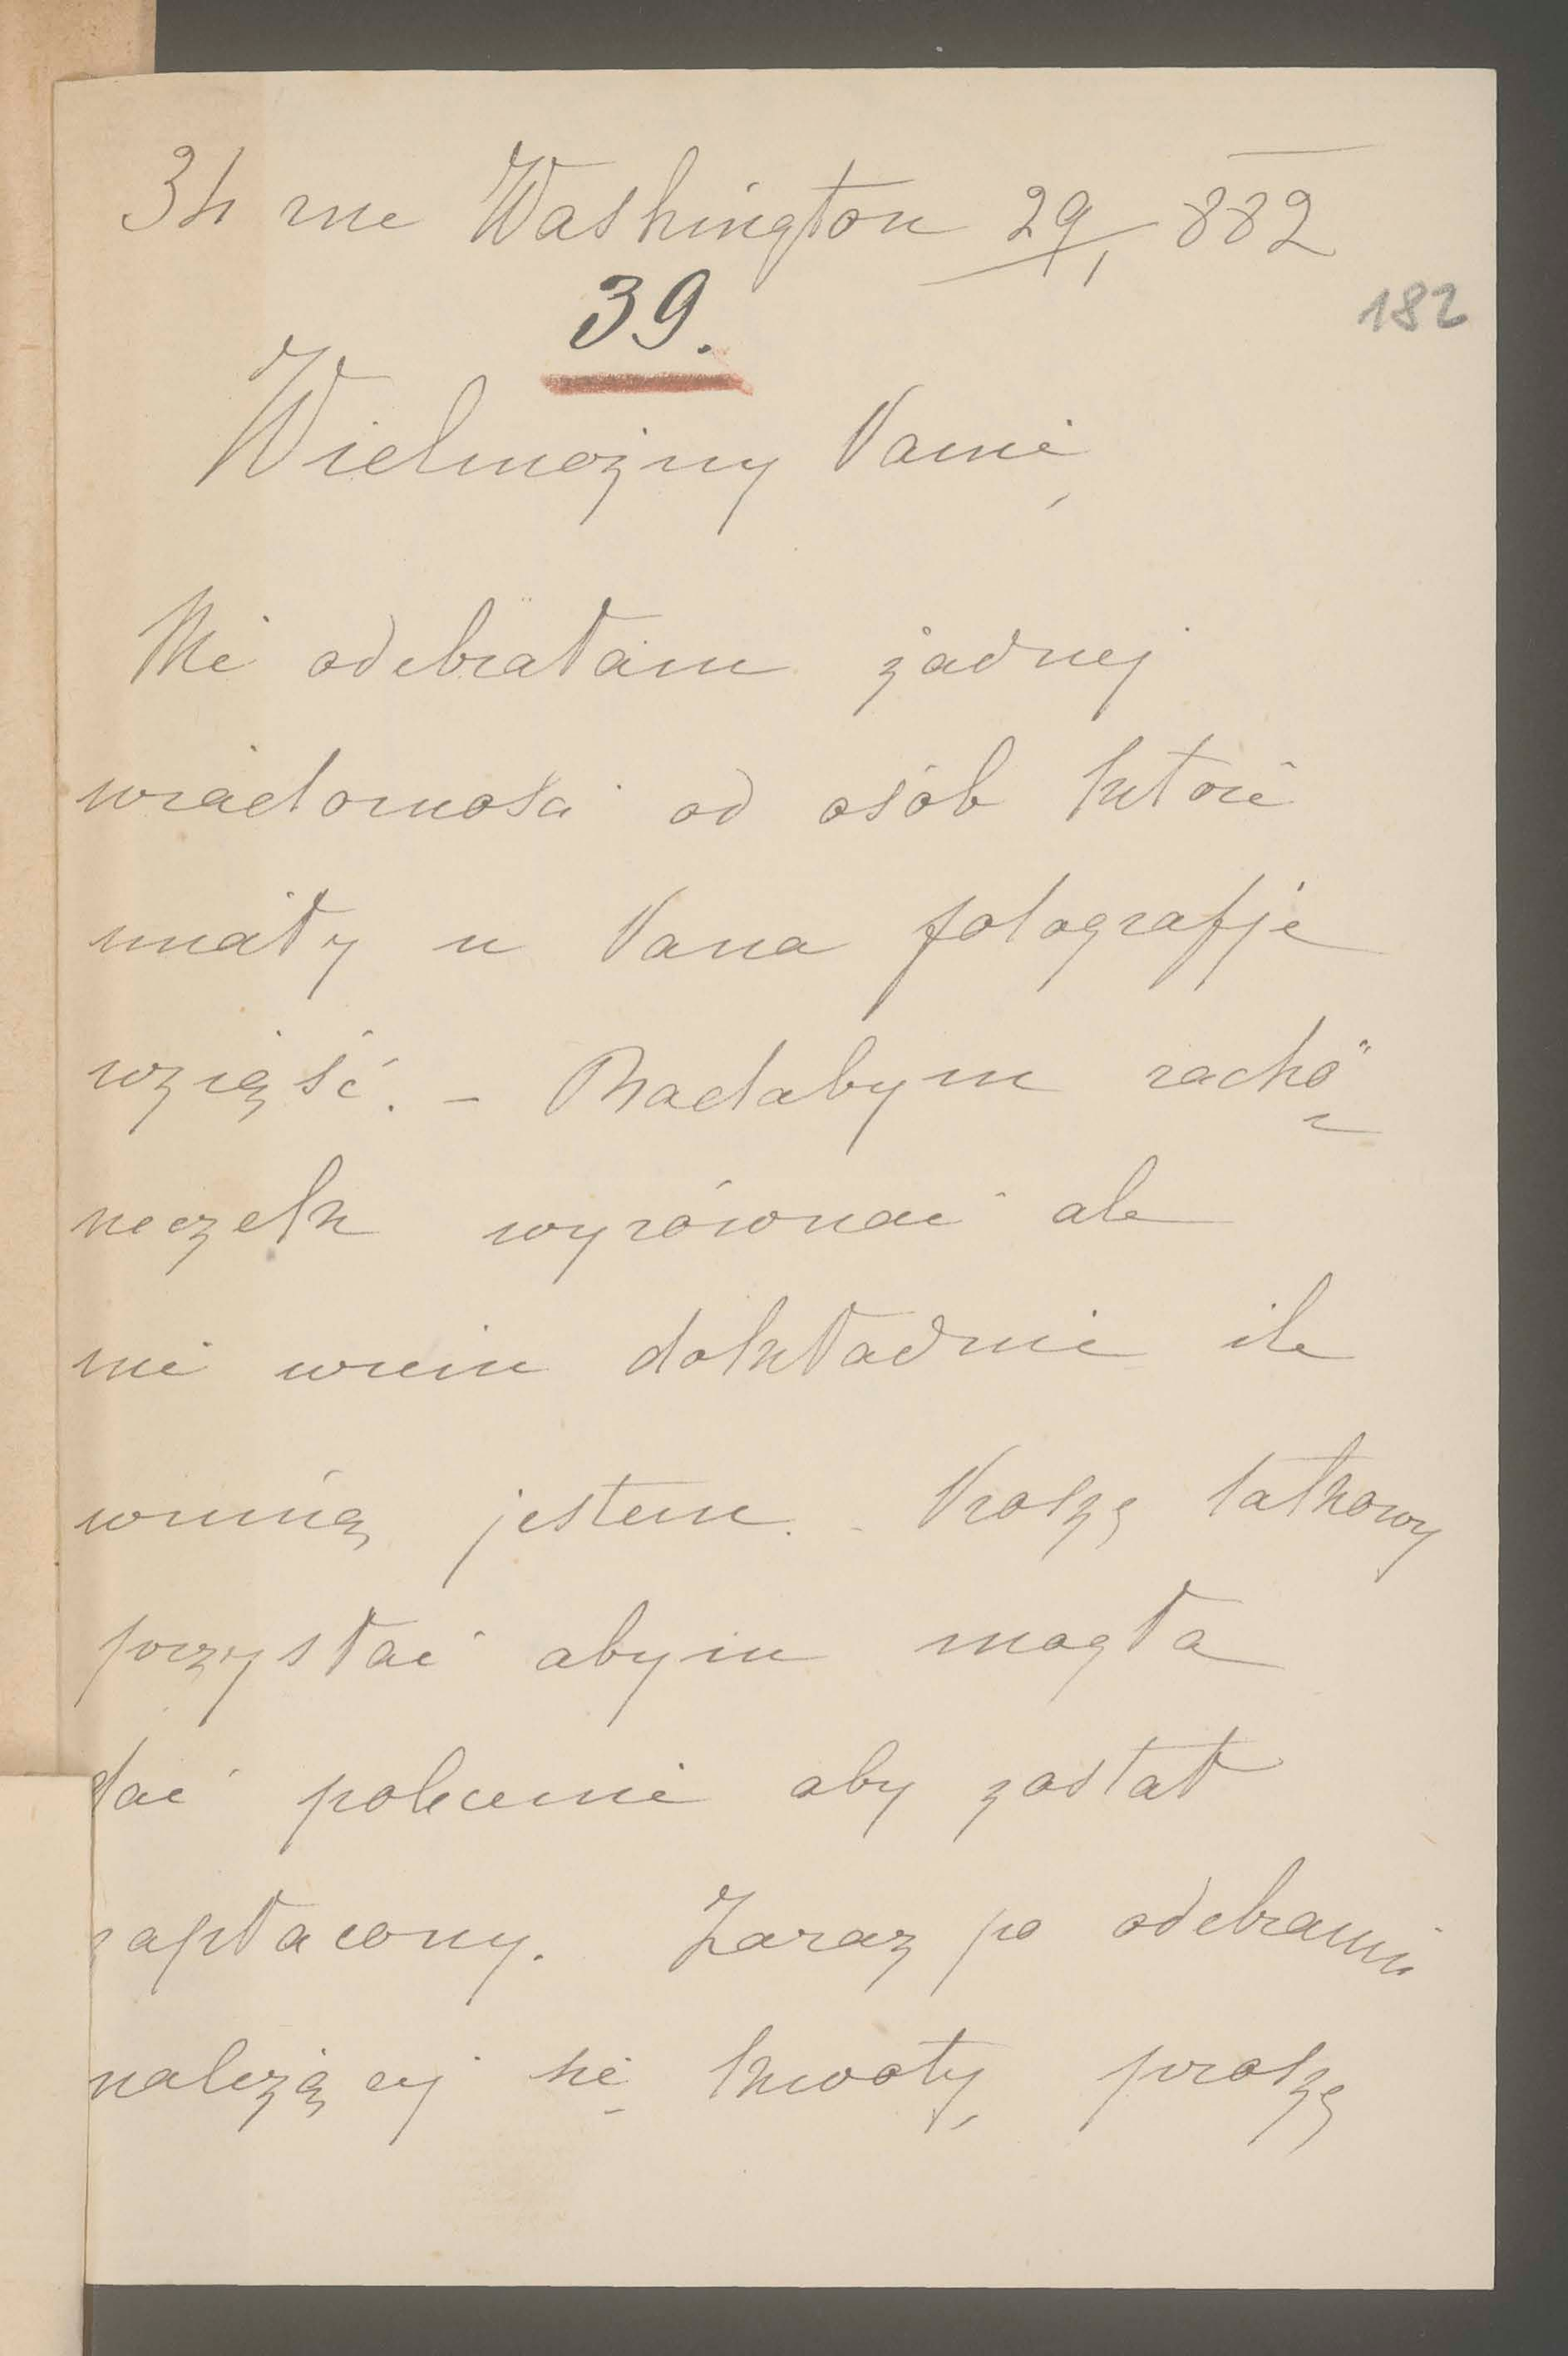 34 rue Washington 29/1 882
39.
182
Wielmożny Panie,
Nie odebrałam żadnej
wiadomości od osób które
miały u Pana fotografje
wziąść. – Radabym racho=
neczek wyrównać ale
nie wiem dokładnie ile
winną jestem. – Proszę takowy
przysłać abym mogła
dać polecenie aby został
zapłacony. Zaraz po odebraniu
należącej się kwoty, proszę